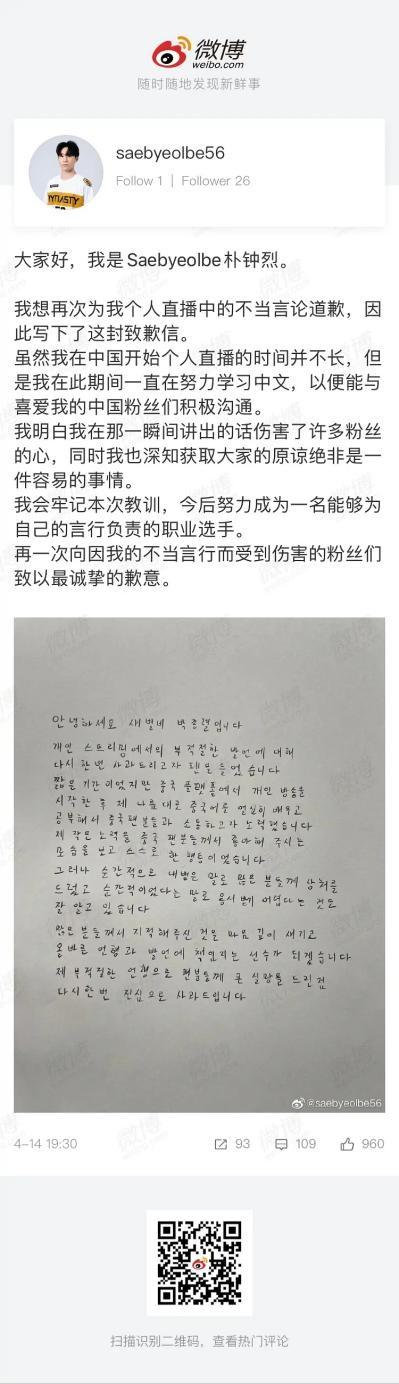 微博
weibo.com
随时随地发现新鲜事
saebyeolbe56
Follow 1 | Follower 26
DYNASTY
大家好，我是Saebyeolbe朴钟烈。
我想再次为我个人直播中的不当言论道歉，因
此写下了这封致歉信。
虽然我在中国开始个人直播的时间并不长，但
是我在此期间一直在努力学习中文，以便能与
喜爱我的中国粉丝们积极沟通。
我明白我在那一瞬间讲出的话伤害了许多粉丝
的心，同时我也深知获取大家的原谅绝非是一
件容易的事情。
我会牢记本次教训，今后努力成为一名能够为
自己的言行负责的职业选手。
再一次向因我的不当言行而受到伤害的粉丝们
致以最诚挚的歉意。
안녕하세요 새별비 박종렬입니다
개인 스트리밍에서의 부적절한 발언에 대해
다시 한번 사과드리고자 펜을 들었습니다
짧은 기간이었지만 중국 플랫폼에서 개인 방송을
시작한 후 제 나름대로 중국어를 열심히 배우고
공부해서 중국팬분들과 소통하고자 노력했습니다
제 작은 노력을 중국 팬분들께서 좋아해 주시는
모습을 보고 스스로 한 행동이었습니다
그러나 순간적으로 내뱉은 말로 많은 분들께 상처를
드렸고 순간적이었다는 말로 용서받기 어렵다는 것도
잘 알고 있습니다
많은 분들께서 지적해주신 것을 마음 깊이 새기고
올바른 언행과 발언에 책임지는 선수가 되겠습니다
제 부적절한 언행으로 팬분들께 큰 실망을 드린점
다시한번 진심으로 사과드립니다
@saebyeolbe56
4-14 19:30
93
109
960
扫描识别二维码，查看热门评论